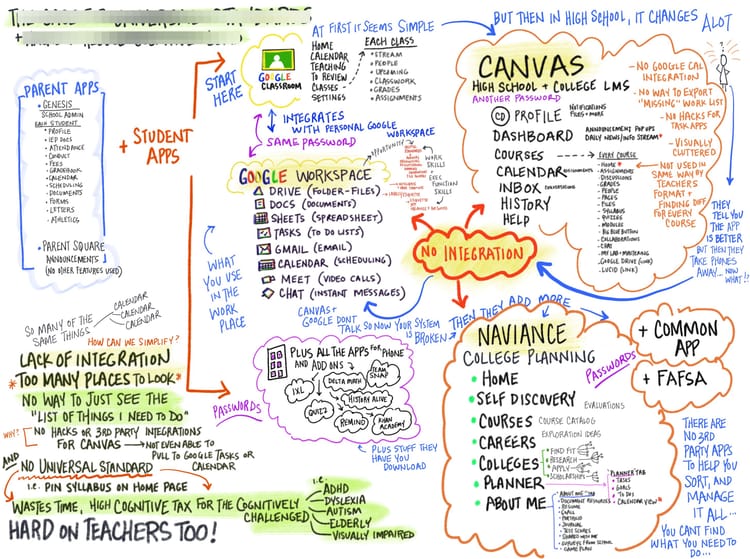 PARENT APPS
GENESIS
SCHOOL ADMIN
EACH STUDENT
PROFILE
IEP DOCS
ATTENDANCE
CONDUCT
FEES
GRADEBOOK
CALENDAR
SCHEDULING
DOCUMENTS
FORMS
LETTERS
ATHLETICS
PARENT SQUARE
ANNOUNCEMENTS
(NO OTHER FEATURES USED)
+ STUDENT
APPS
START
HERE
GOOGLE
CLASSROOM
AT FIRST IT SEEMS SIMPLE
HOME
CALENDAR
TEACHING
TO REVIEW
CLASSES
SETTINGS
EACH CLASS
STREAM
PEOPLE
UPCOMING
CLASSWORK
GRADES
ASSIGNMENTS
INTEGRATES
WITH PERSONAL GOOGLE
WORKSPACE
SAME PASSWORD
GOOGLE WORKSPACE
DRIVE (FOLDER-FILES)
DOCS (DOCUMENTS)
SHEETS (SPREADSHEET)
TASKS (TO DO LISTS)
GMAIL (EMAIL)
CALENDAR (SCHEDULING)
MEET (VIDEO CALLS)
CHAT (INSTANT MESSAGES)
OPPORTUNITY
WORK
SKILLS
EXEC
FUNCTION
SKILLS
WHAT
YOU USE
IN THE
WORK
PLACE
BUT THEN IN HIGH SCHOOL, IT CHANGES ALOT
CANVAS
HIGH SCHOOL + COLLEGE LMS
ANOTHER PASSWORD
CD PROFILE
NOTIFICATIONS
FILES + MORE
DASHBOARD
ANNOUNCEMENT POP UPS
DAILY NEWS/INFO STREAM
COURSES
CALENDAR
INBOX
CONVERSATIONS
HISTORY
HELP
EVERY COURSE
HOME
ASSIGNMENTS
DISCUSSIONS
GRADES
PEOPLE
PAGES
FILES
SYLLABUS
QUIZZES
MODULES
BIG BLUE BUTTON
COLLABORATIONS
CHAT
MY LAB + MASTERING
GOOGLE DRIVE (LINK)
LUCID (LINK)
- NO GOOGLE CAL
INTEGRATION
- NO WAY TO EXPORT
"MISSING" WORK LIST
- NO HACKS FOR
TASK APPS
- VISUALLY
CLUTTERED
- NOT USED IN
SAME WAY BY
TEACHERS
FORMAT +
FINDING DIFF
FOR EVERY
COURSE
THEY TELL
YOU THE APP
IS BETTER
BUT THEN THEY
TAKE PHONES
AWAY... NOW
WHAT!?
NO INTEGRATION
CANVAS +
GOOGLE DONT
TALK SO NOW YOUR SYSTEM
IS BROKEN
THEN THEY ADD MORE
SO MANY OF THE
SAME THINGS
CALENDAR
CALENDAR
CALENDAR
HOW CAN WE SIMPLIFY?
LACK OF INTEGRATION
*TOO MANY PLACES TO LOOK*
NO WAY TO JUST SEE THE
"LIST OF THINGS I NEED TO DO"
WHY? NO HACKS OR 3RD PARTY INTEGRATIONS
FOR CANVAS → NOT EVEN ABLE TO
PULL TO GOOGLE TASKS OR
CALENDAR
AND
NO UNIVERSAL STANDARD
I.E. PIN SYLLABUS ON HOME PAGE
WASTES TIME, HIGH COGNITIVE TAX FOR THE COGNITIVELY
CHALLENGED
I.E.
ADHD
DYSLEXIA
AUTISM
ELDERLY
VISUALLY IMPAIRED
HARD ON TEACHERS TOO!
PASSWORDS
PLUS ALL THE APPS FOR PHONE
AND ADD ONS
TEAM
SNAP
IXL
DELTA MATH
HISTORY ALIVE
QUIZZ
REMIND
KHAN
ACADEMY
+ PLUS STUFF THEY
HAVE YOU
DOWNLOAD
NAVIANCE
COLLEGE PLANNING
PASSWORDS
HOME
SELF DISCOVERY
EVALUATIONS
COURSES
COURSE CATALOG
CAREERS
EXPLORATION IDEAS
COLLEGES
FIND FIT
RESEARCH
APPLY
SCHOLARSHIPS
PLANNER
PLANNER TAB
TASKS
GOALS
TO DOS
CALENDAR VIEW
ABOUT ME
ABOUT ME TAB
DOCUMENT RESOURCES
RESUME
PORTFOLIO
JOURNAL
TEST SCORES
SHARED WITH ME
SURVEYS FROM SCHOOL
GAME PLAN
+ COMMON
APP
+ FAFSA
THERE ARE
NO 3RD
PARTY APPS
TO HELP YOU
SORT, AND
MANAGE
IT ALL...
YOU CANT FIND
WHAT YOU NEED TO
DO...